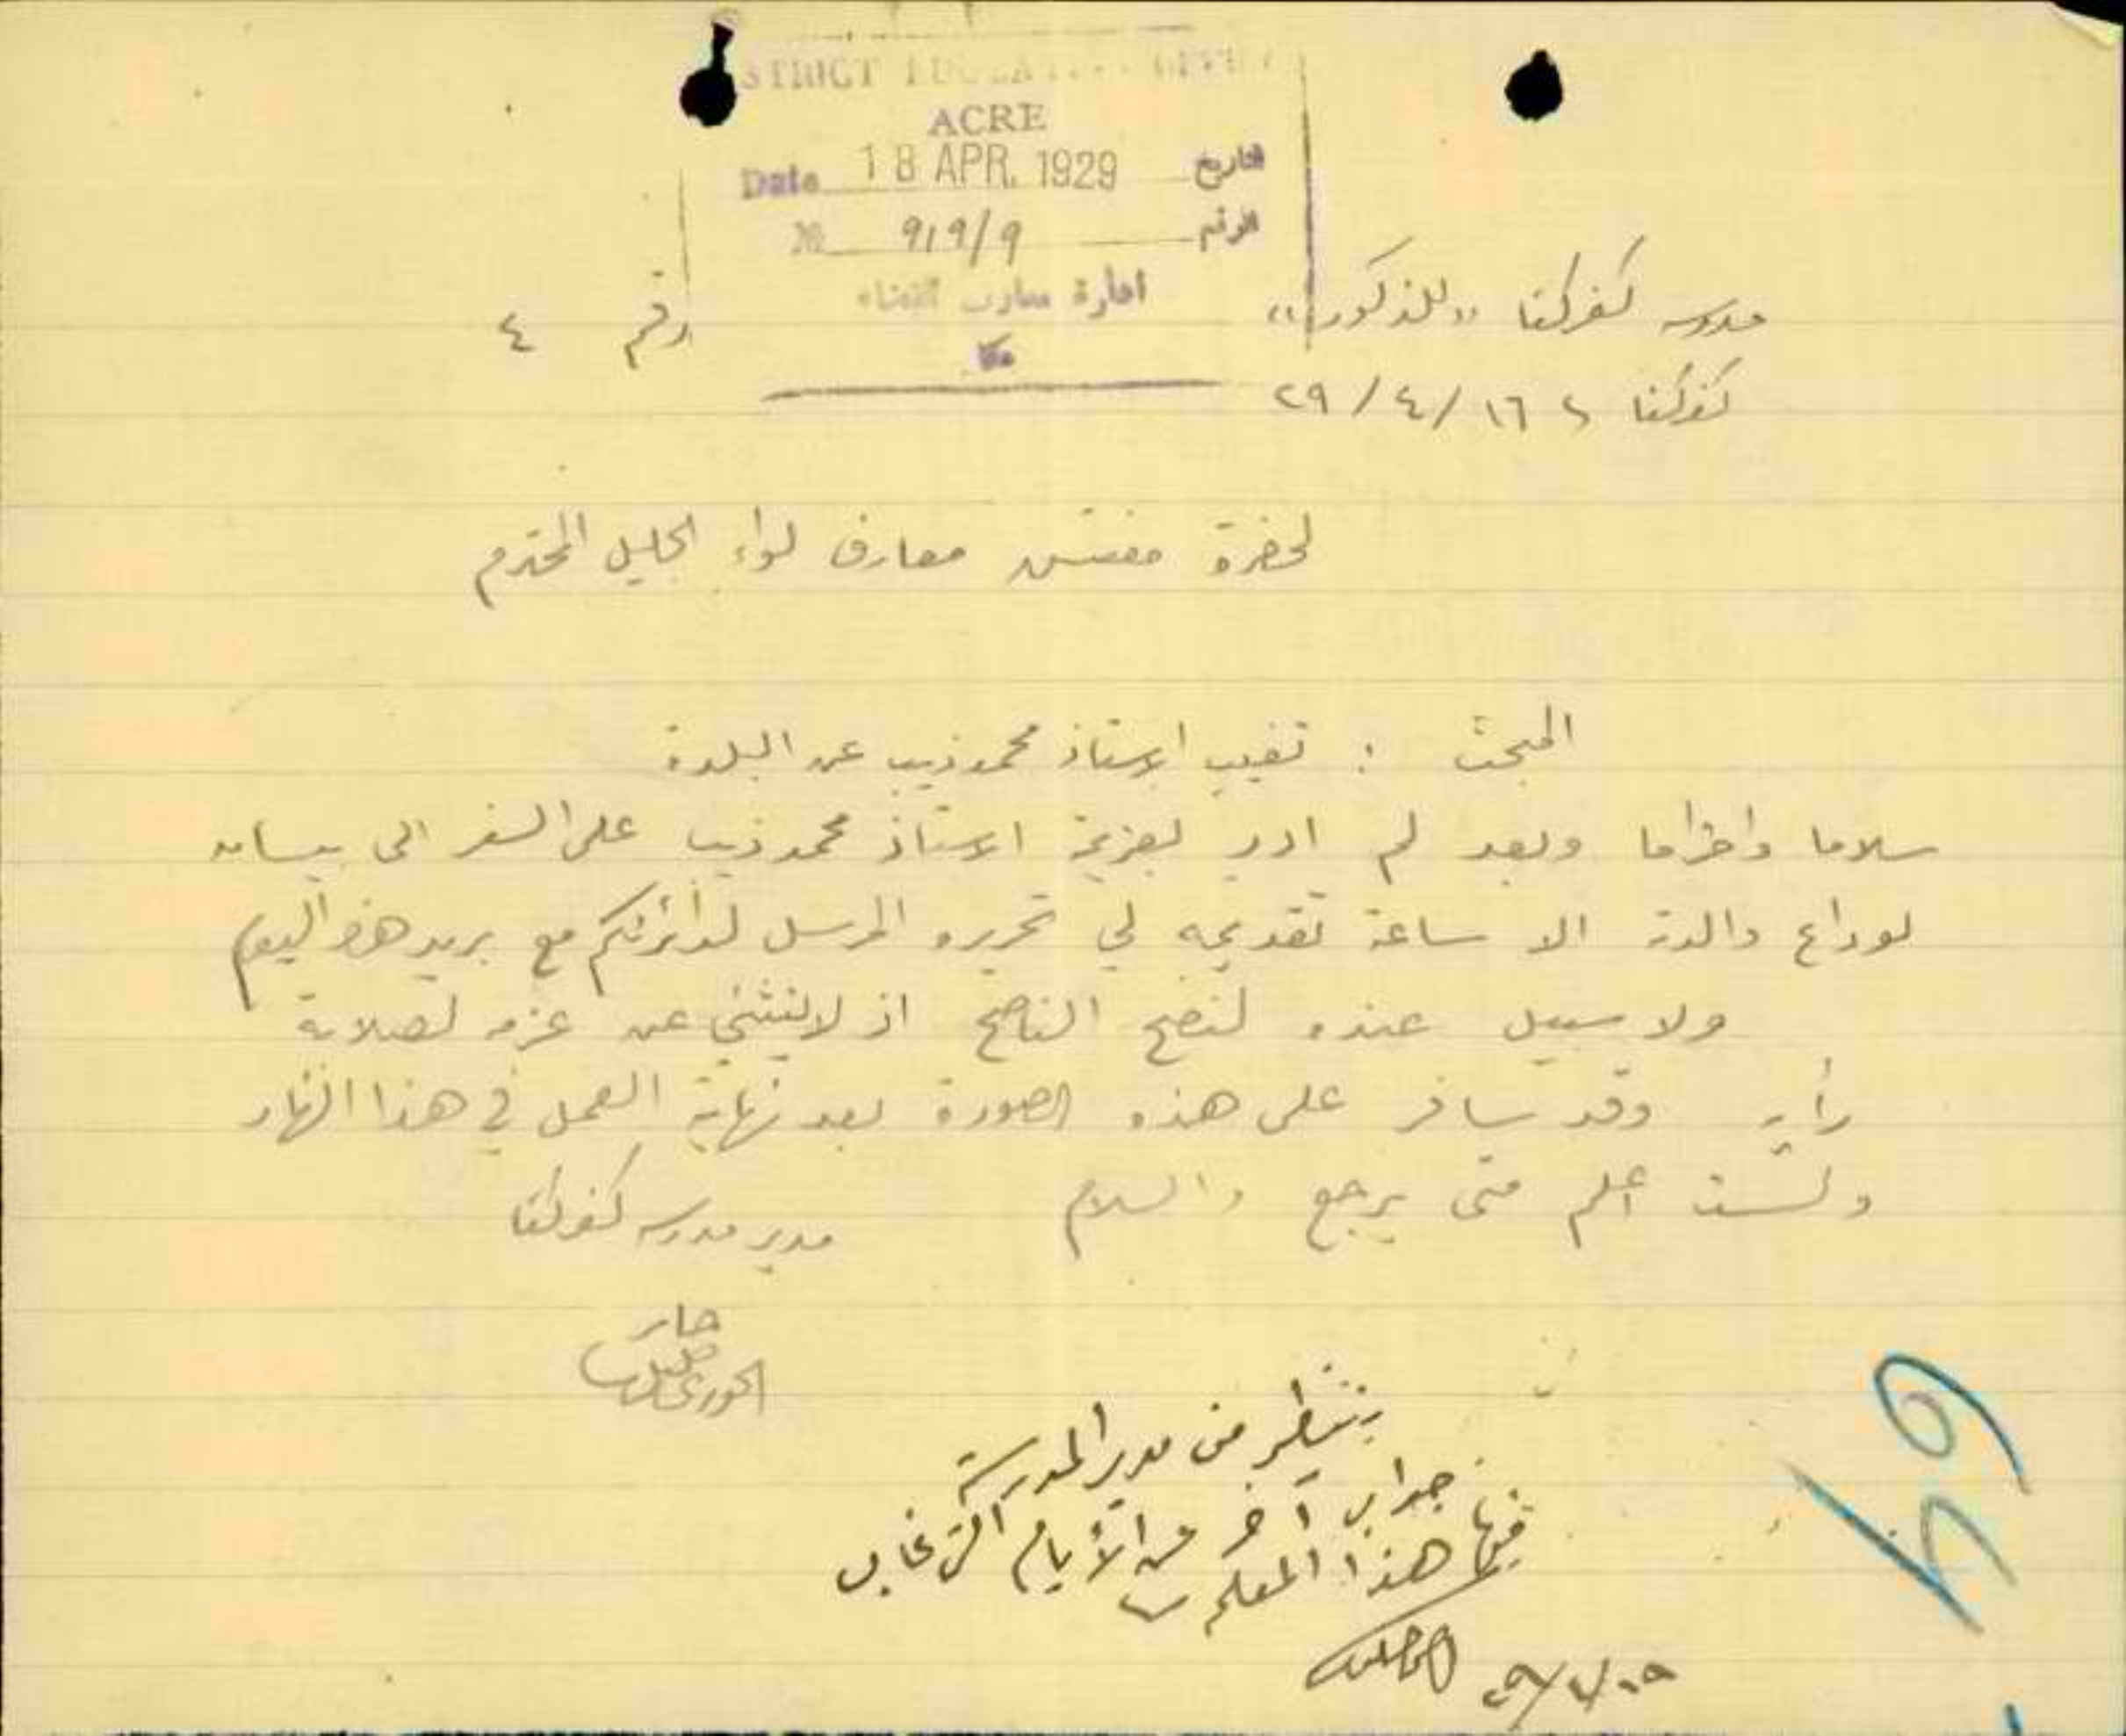 DISTRICT EDUCATION OFFICE
ACRE
Date 18 APR. 1929 التاريخ
№ 919/9 الرقم
ادارة معارف القضاء
عكا
مدرسة كفركنا "للذكور" رقم ٤
كفركنا في ١٦/٤/٢٩
لحضرة مفتش معارف لواء الجليل المحترم
المبحث : تغيب الاستاذ محمد ذيب عن البلدة
سلاما واحتراما وبعد لم ادر بعزيمة الاستاذ محمد ذيب على السفر الى بيسان
لوداع والدته الا ساعة تقديمه لي تحريره المرسل لدائرتكم مع بريد هذا اليوم
ولا سبيل عنده لنصح الناصح اذ لا ينثني عن عزمه لصلابة
رأيه وقد سافر على هذه الصورة بعد نهاية العمل في هذا النهار
ولست اعلم متى يرجع والسلام
مدير مدرسة كفركنا
الخوري
ينتظر من مدير المدرسة
جواب آخر عن الأيام التي غاب
فيها هذا المعلم
64